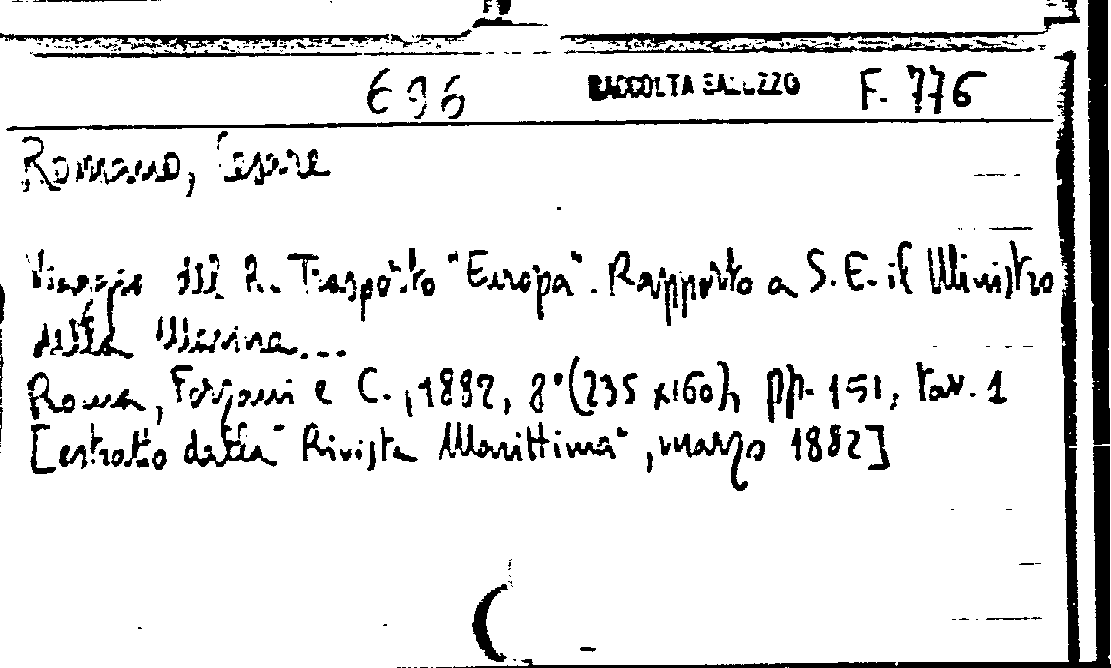 696 RACCOLTA SALUZZO F. 776
Romano, Cesare
Viaggio del R. Trasporto "Europa". Rapporto a S. E. il Ministro
della Marina...
Roma, Forzani e C., 1882, 8° (235 x 160), pp. 151, tav. 1
[estratto dalla "Rivista Marittima", marzo 1882]